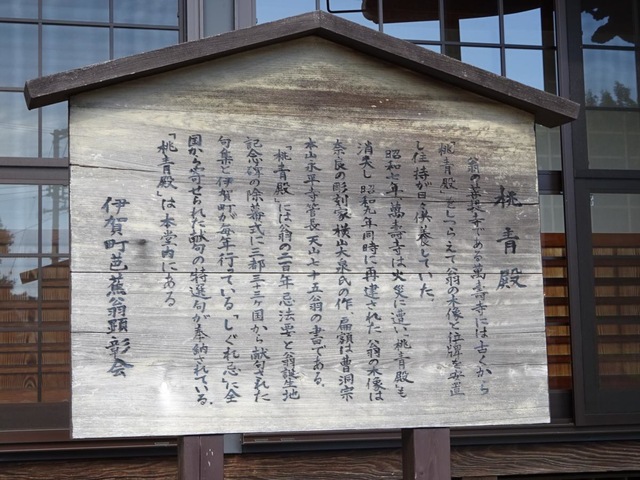 桃青殿
翁の菩提寺である萬壽寺には古くから
「桃青殿」をしつらえて翁の木像と位牌を安置
し住持が日供養していた。
昭和七年萬壽寺は火災に遭い桃青殿も
消失し昭和九年同時に再建された翁木像は
奈良の彫刻家横山大泉氏の作、扁額は曹洞宗
本山永平寺管長天山七十五翁の書である。
「桃青殿」には翁の二百年忌法要と翁誕生地
記念碑の除幕式に二都三十三ヶ国から献句された
句集と伊賀町が毎年行っている「しぐれ忌」に全
国から寄せられた献詠の特選句が奉納されている。
「桃青殿」は本堂内にある
伊賀町芭蕉翁顕彰会